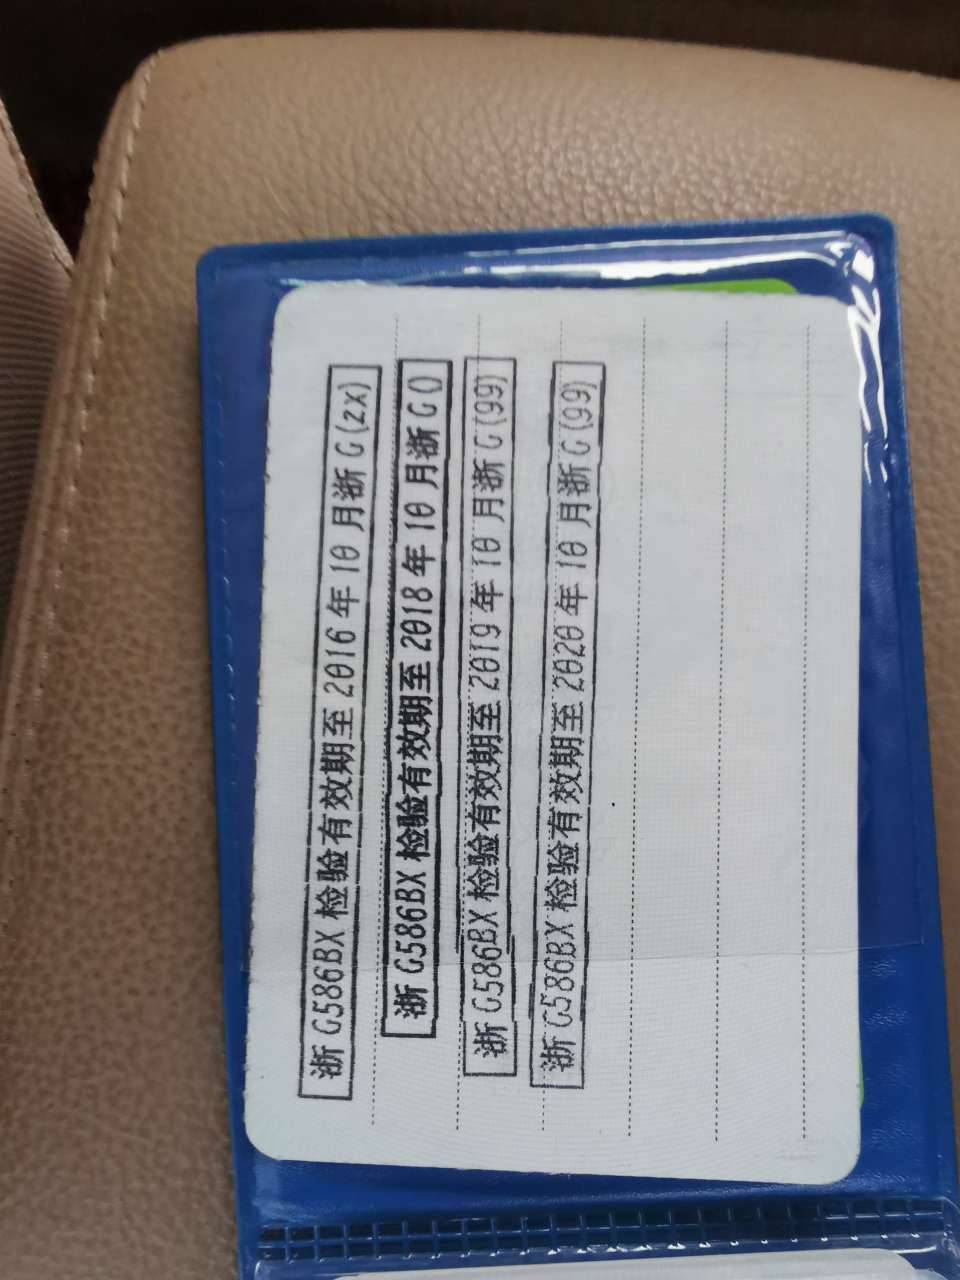 浙G586BX检验有效期至2016年10月浙G(ZX)
浙G586BX检验有效期至2018年10月浙G()
浙G586BX检验有效期至2019年10月浙G(99)
浙G586BX检验有效期至2020年10月浙G(99)